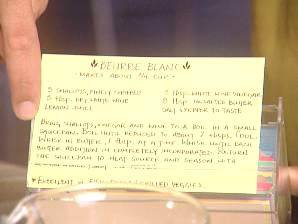 BEURRE BLANC
MAKES ABOUT 3/4 CUP
3 SHALLOTS, FINELY CHOPPED
2 tbsp. WHITE WINE VINEGAR
3 tbsp. DRY WHITE WINE
8 tbsp. UNSALTED BUTTER
LEMON JUICE
SALT & PEPPER TO TASTE
BRING SHALLOTS, VINEGAR AND WINE TO A BOIL IN A SMALL
SAUCEPAN. BOIL UNTIL REDUCED TO ABOUT 2 tbsp.
WORK IN BUTTER, 1 tbsp. AT A TIME. WHISK UNTIL EACH
BUTTER ADDITION IS COMPLETELY INCORPORATED. RETURN
THE SAUCEPAN TO HEAT SOURCE AND SEASON WITH
EXCELLENT FISH GRILLED VEGGIES